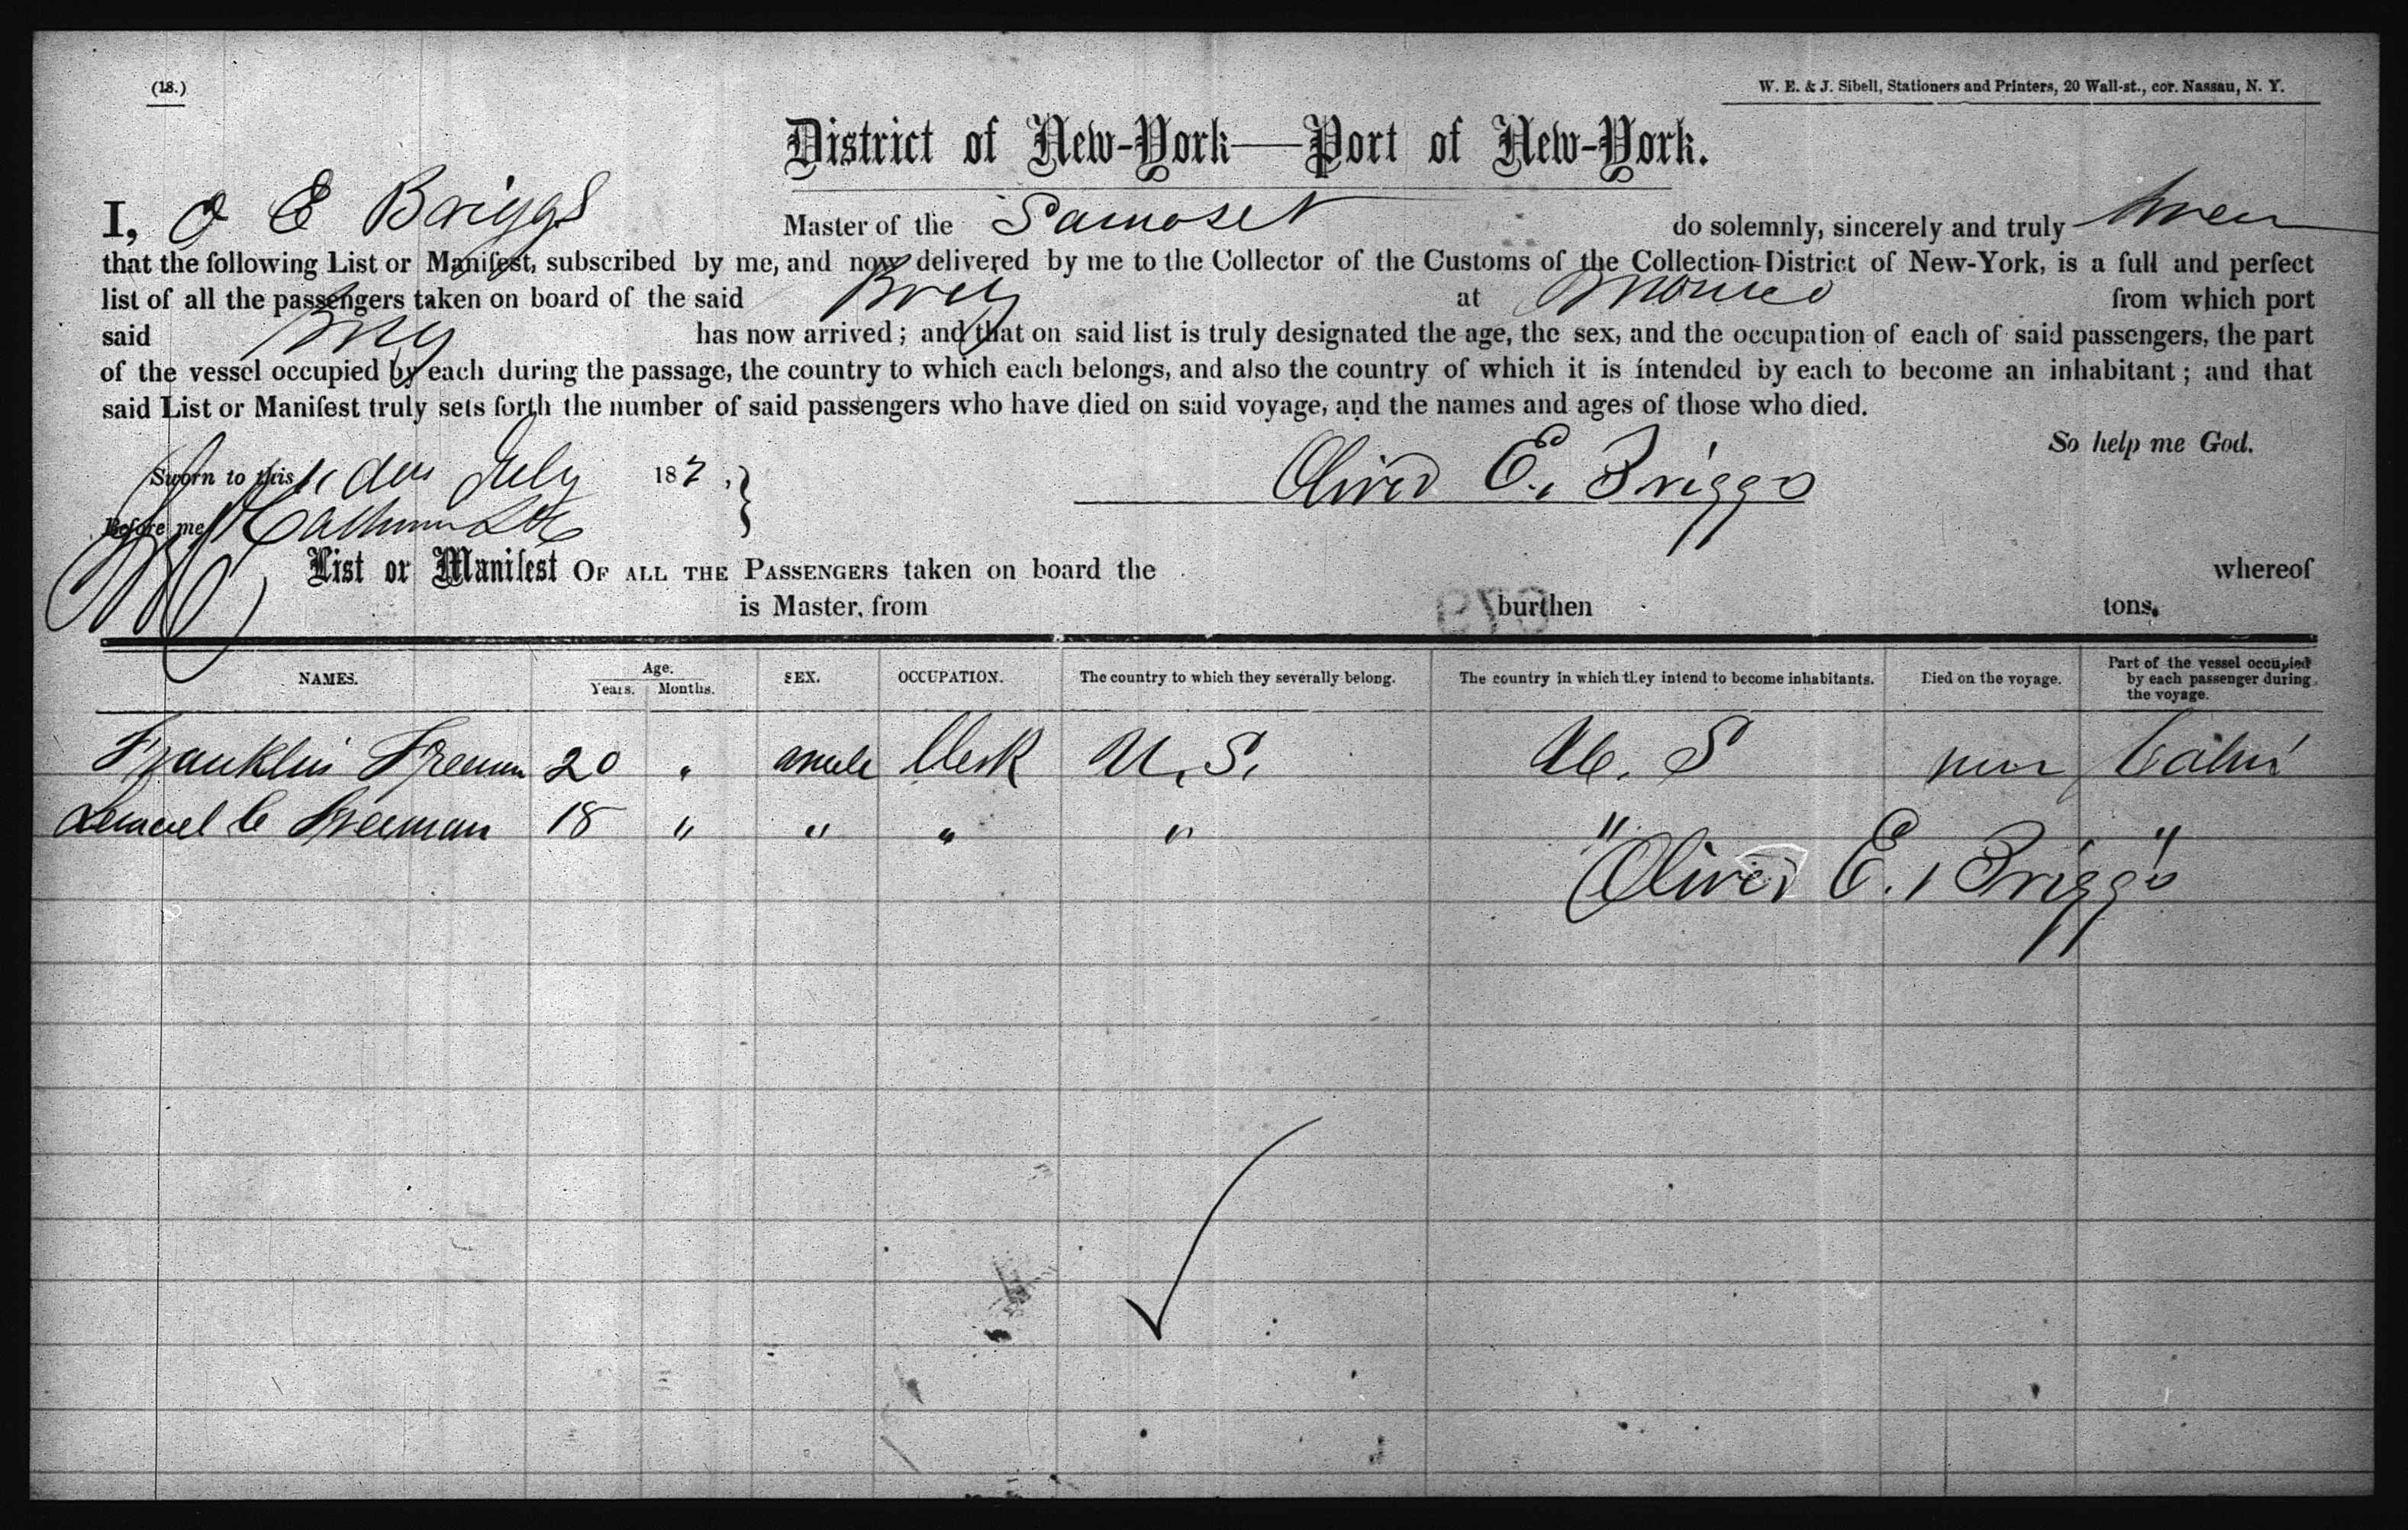 (18.)
W. E. & J. Sibell, Stationers and Printers, 20 Wall-st., cor. Nassau, N. Y.
District of New-York—Port of New-York.
I, O E Briggs Master of the Samoset do solemnly, sincerely and truly swear
that the following List or Manifest, subscribed by me, and now delivered by me to the Collector of the Customs of the Collection-District of New-York, is a full and perfect
list of all the passengers taken on board of the said Brig at from which port
said Brig has now arrived; and that on said list is truly designated the age, the sex, and the occupation of each of said passengers, the part
of the vessel occupied by each during the passage, the country to which each belongs, and also the country of which it is intended by each to become an inhabitant; and that
said List or Manifest truly sets forth the number of said passengers who have died on said voyage, and the names and ages of those who died.
So help me God.
Sworn to this July 187
Oliver E. Briggs
Before me
List or Manifest OF ALL THE PASSENGERS taken on board the whereof
is Master, from burthen tons.
NAMES. Age. Years. Months. SEX. OCCUPATION. The country to which they severally belong. The country in which they intend to become inhabitants. Died on the voyage. Part of the vessel occupied by each passenger during the voyage.
Franklin Freeman 20 " male Clerk U. S. U. S Cabin
Lemuel C Freeman 18 " " " " " "
Oliver E. Briggs